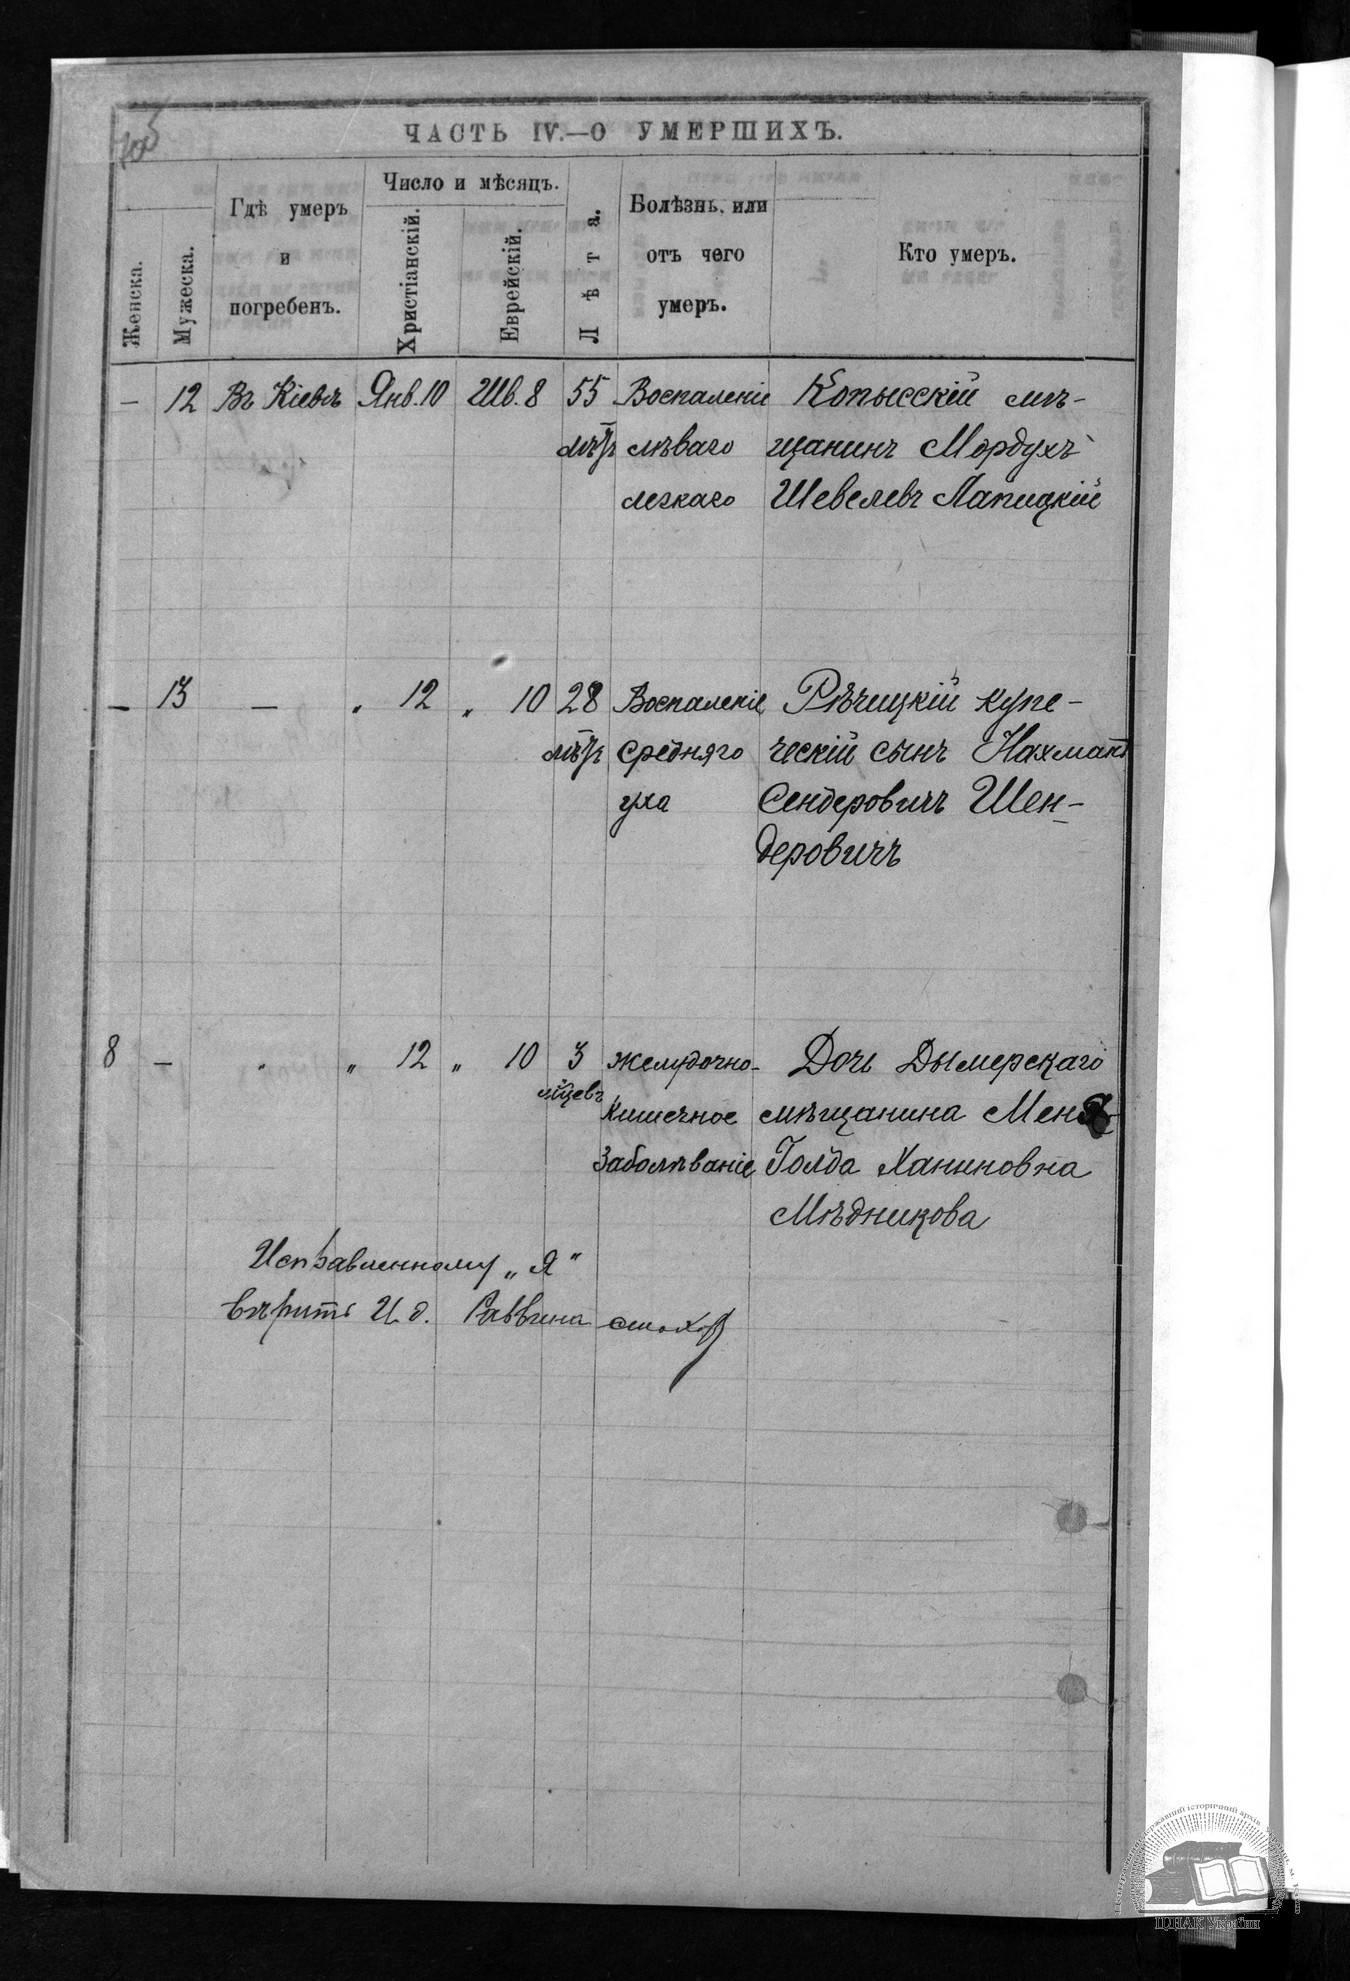 ЧАСТЬ IV.—О УМЕРШИХЪ.
Женска.
Мужеска.
Гдѣ умеръ
и
погребенъ.
Число и мѣсяцъ.
Христіанскій.
Еврейскій.
Лѣта.
Болѣзнь, или
отъ чего
умеръ.
Кто умеръ.
— 12 Въ Кіевѣ Янв. 10 Шв. 8 55 Воспаленіе Копысскій мѣ-
лѣтъ лѣваго щанинъ Мордухъ
легкаго Шевелевъ Лапицкій
— 13 — " 12 " 10 28 Воспаленіе Рѣчицкій купе-
лѣтъ средняго ческій сынъ Нахманъ
уха Сендеровичъ Шен-
деровичъ
8 — " " 12 " 10 3 желудочно- Дочь Дымерскаго
мѣсцевъ кишечное мѣщанина Меня
заболѣваніе Голда Ханиновна
Мѣдникова
Исправленному „Я"
вѣрить И д. Раввина
ЦДІАК України